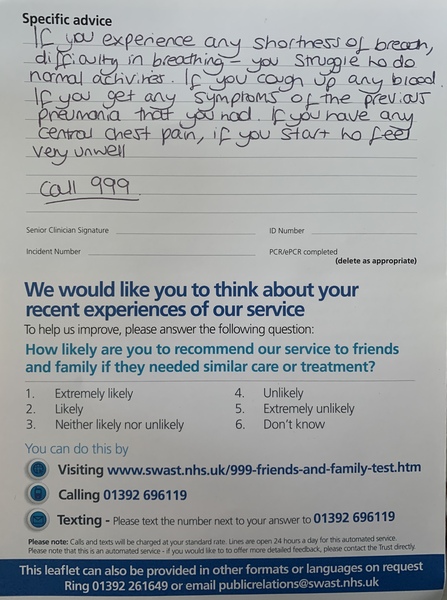 Specific advice
If you experience any shortness of breath,
difficulty in breathing - you struggle to do
normal activites. If you cough up any blood.
If you get any symptoms of the previous
pneumonia that you had. If you have any
central chest pain, if you start to feel
very unwell
call 999.
Senior Clinician Signature
ID Number
Incident Number
PCR/ePCR completed
(delete as appropriate)
We would like you to think about your
recent experiences of our service
To help us improve, please answer the following question:
How likely are you to recommend our service to friends
and family if they needed similar care or treatment?
1. Extremely likely
2. Likely
3. Neither likely nor unlikely
4. Unlikely
5. Extremely unlikely
6. Don't know
You can do this by
Visiting www.swast.nhs.uk/999-friends-and-family-test.htm
Calling 01392 696119
Texting - Please text the number next to your answer to 01392 696119
Please note: Calls and texts will be charged at your standard rate. Lines are open 24 hours a day for this automated service.
Please note that this is an automated service - if you would like to to offer more detailed feedback, please contact the Trust directly.
This leaflet can also be provided in other formats or languages on request
Ring 01392 261649 or email publicrelations@swast.nhs.uk